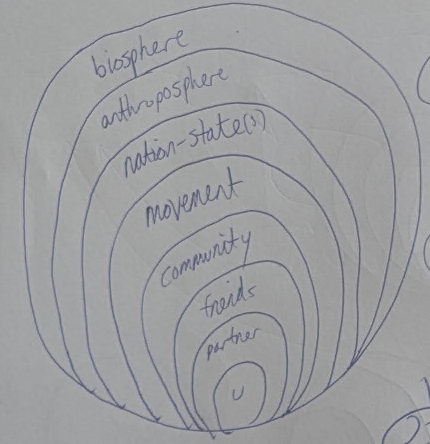 biosphere
anthroposphere
nation-state(s)
movement
community
freinds
partner
u